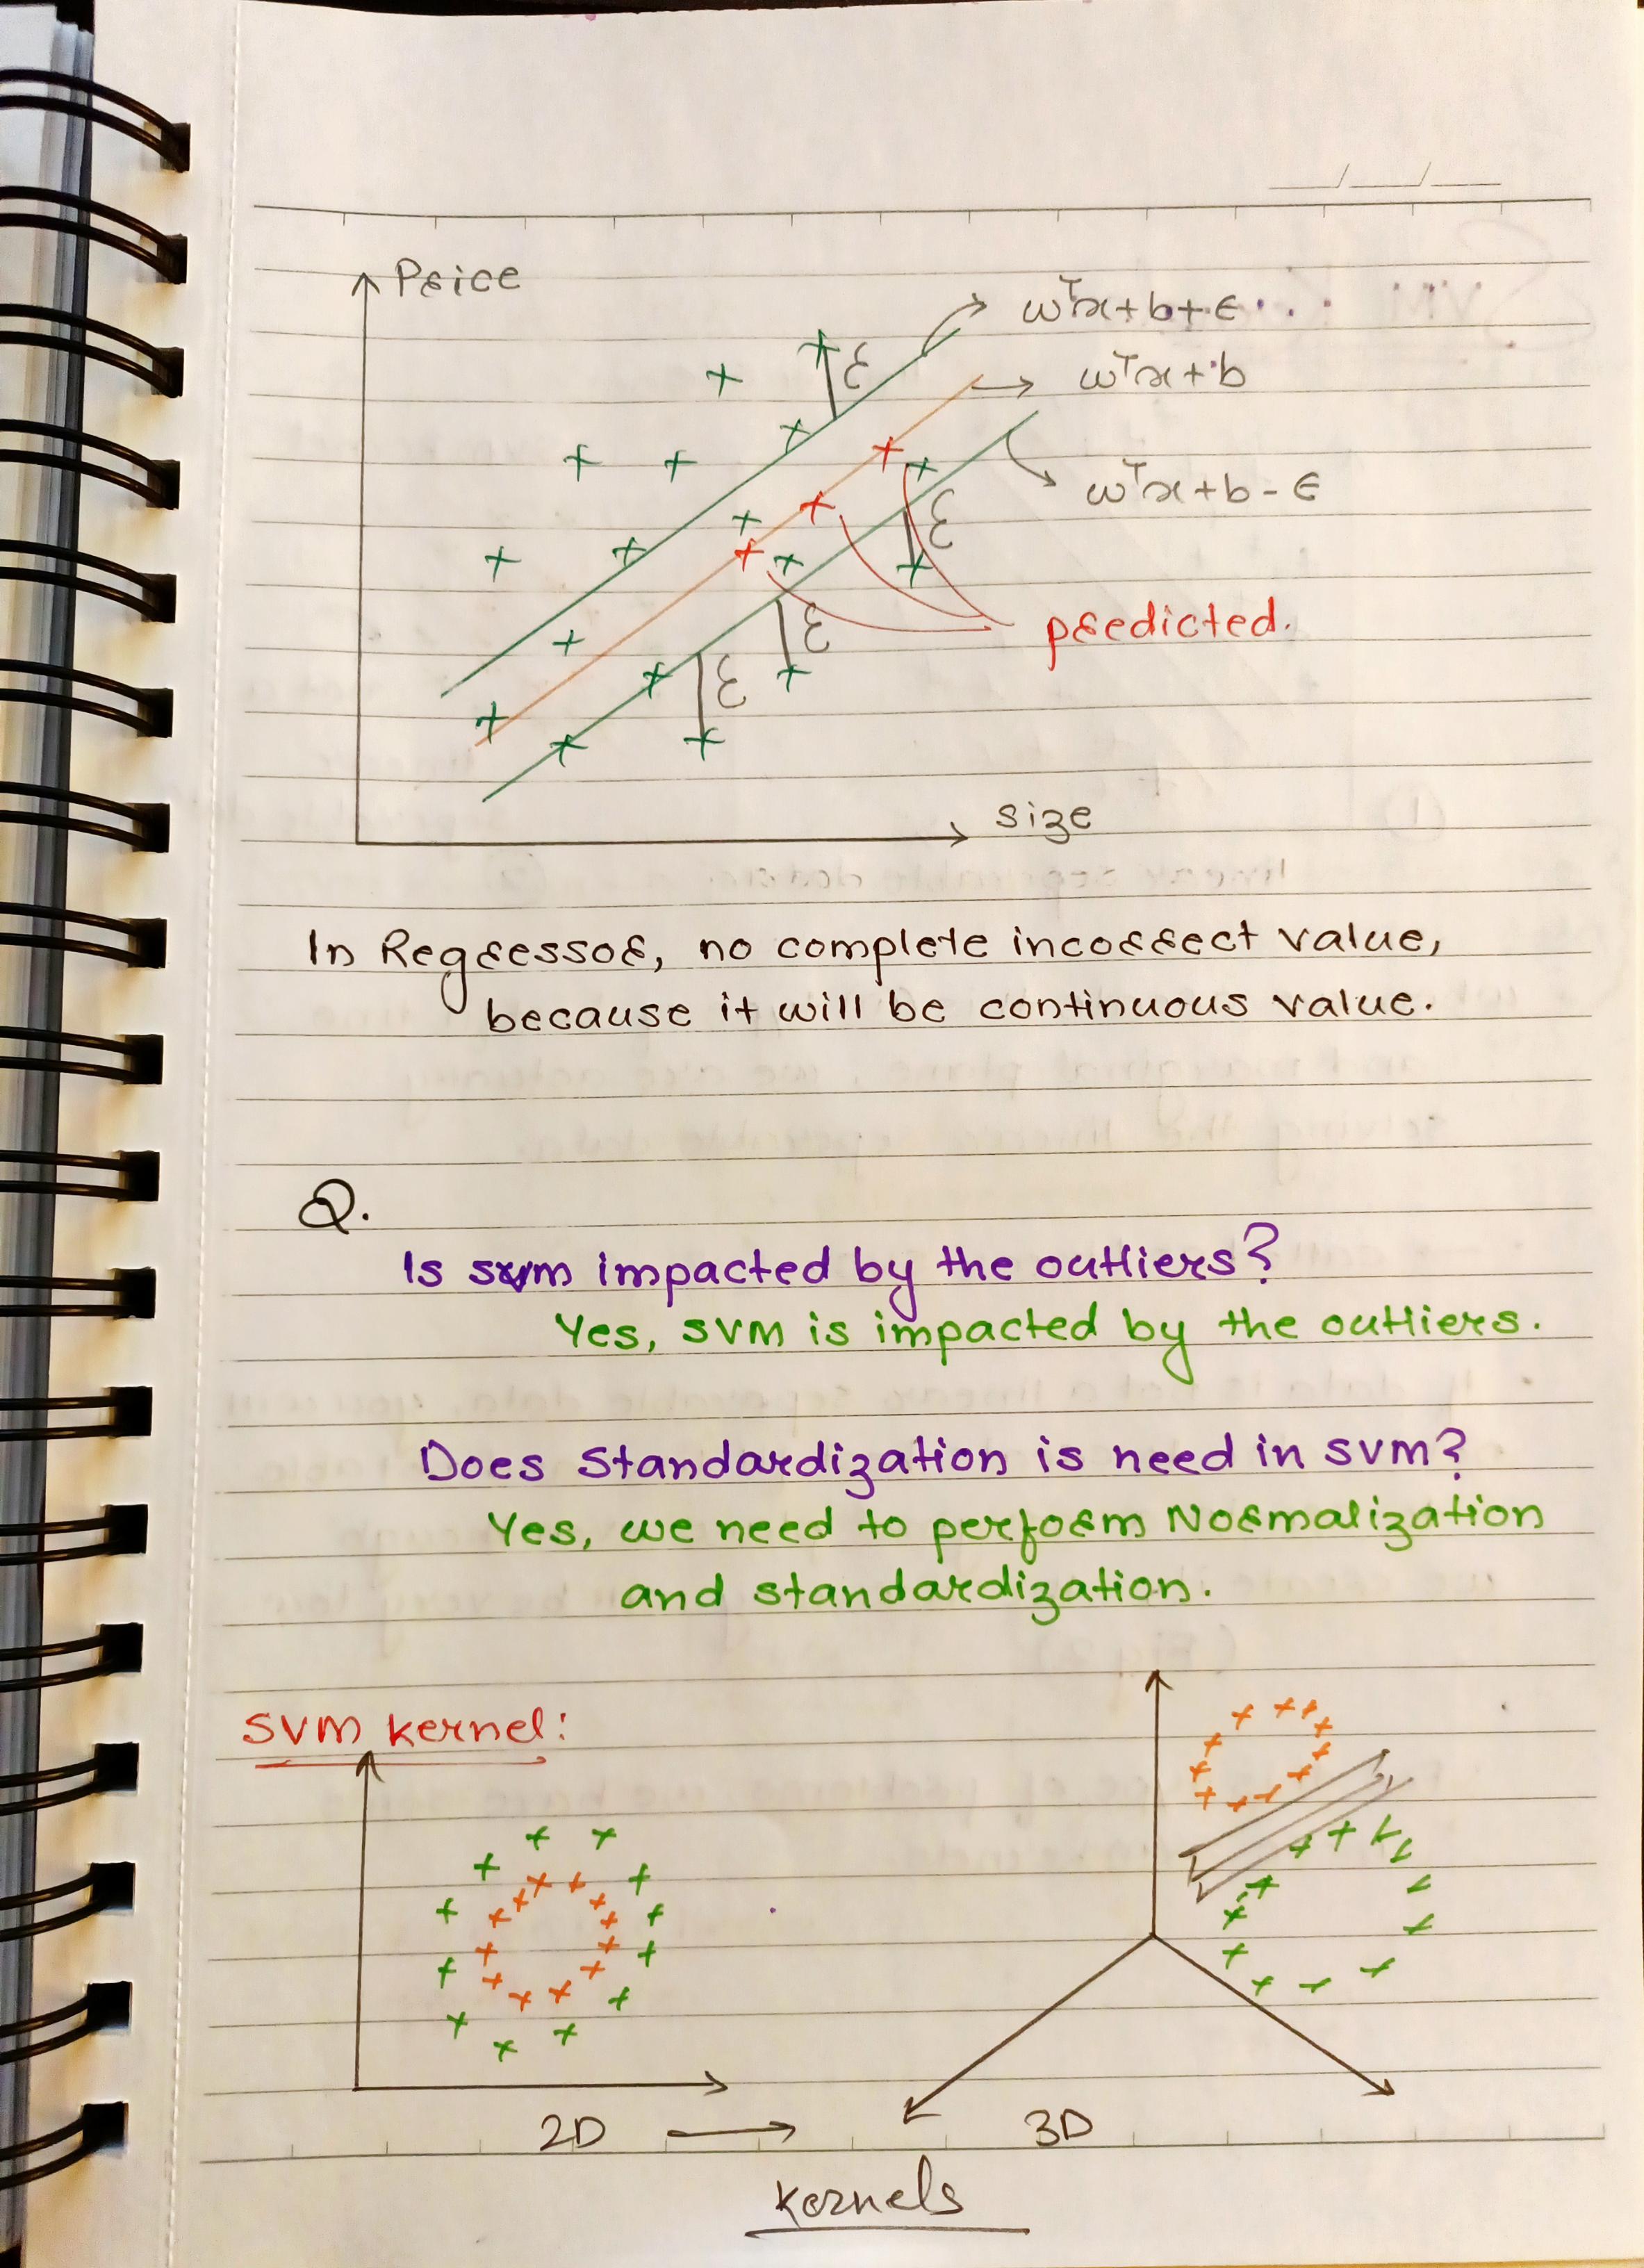 Price
wᵀx+b+ϵ
ξ
wᵀx+b
wᵀx+b-ϵ
ξ
predicted.
ξ
ξ
size
In Regressor, no complete incorrect value,
because it will be continuous value.
Q.
Is svm impacted by the outliers?
Yes, SVM is impacted by the outliers.
Does Standardization is need in SVM?
Yes, we need to perform Normalization
and standardization.
SVM kernel:
2D → 3D
Kernels